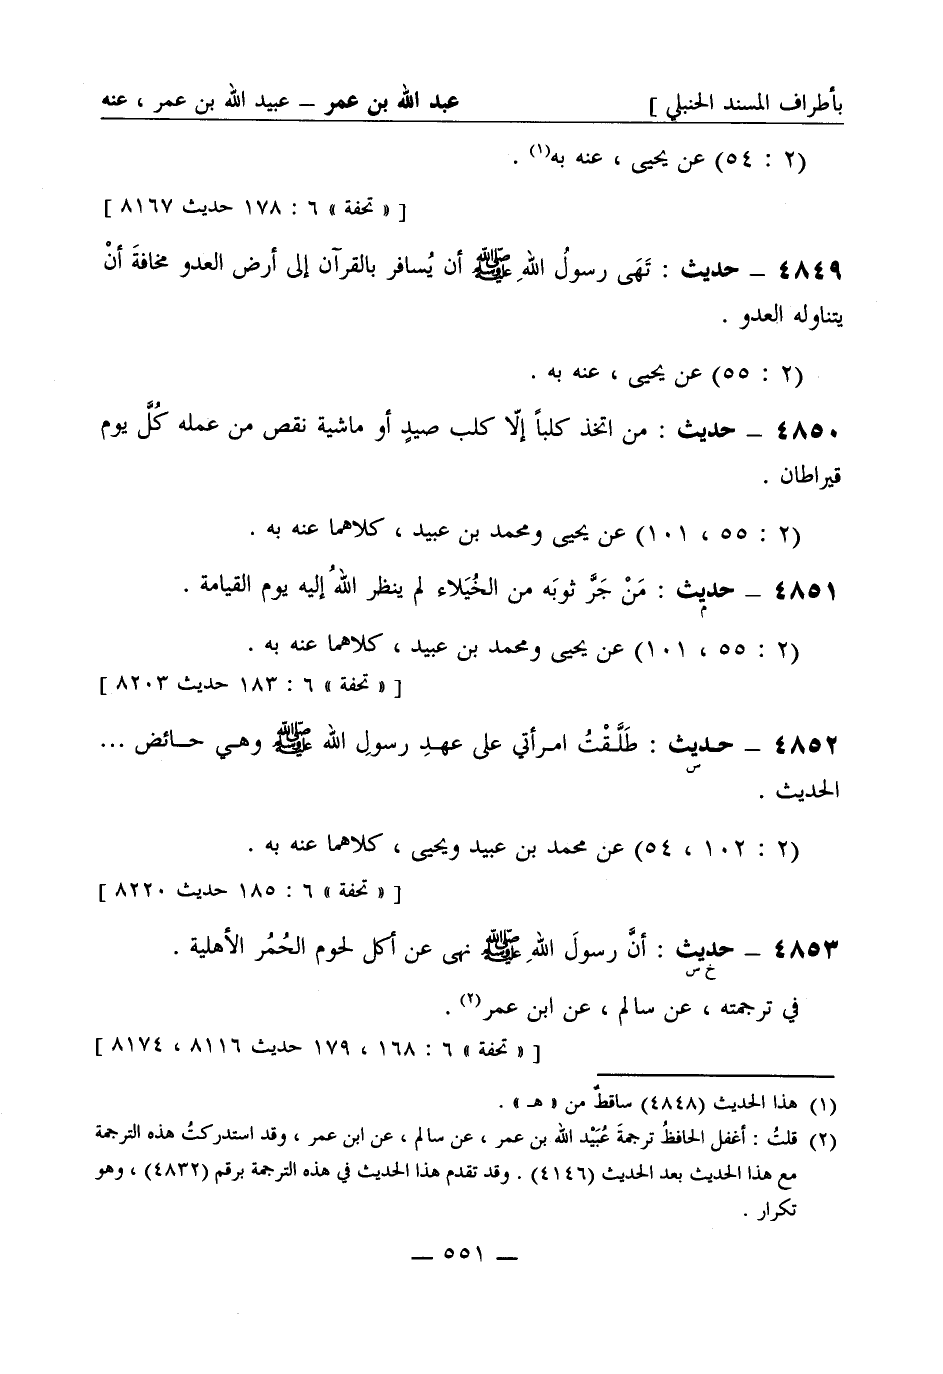 بأطراف المسند الحنبلي ] عبد الله بن عمر ــ عبيد الله بن عمر ، عنه
(٢ : ٥٤) عن يحيى ، عنه به(١) .
[ « تحفة » ٦ : ١٧٨ حديث ٨١٦٧ ]
٤٨٤٩ ــ حديث : نَهَى رسولُ اللهِ ﷺ أن يُسافر بالقرآن إلى أرض العدو مخافةَ أنْ
يتناوله العدو .
(٢ : ٥٥) عن يحيى ، عنه به .
٤٨٥٠ ــ حديث : من اتخذ كلباً إلّا كلب صيدٍ أو ماشية نقص من عمله كُلَّ يوم
قيراطان .
(٢ : ٥٥ ، ١٠١) عن يحيى ومحمد بن عبيد ، كلاهما عنه به .
٤٨٥١ ــ حديث : مَنْ جَرَّ ثوبَه من الخُيَلاء لم ينظر اللهُ إليه يوم القيامة .
م
(٢ : ٥٥ ، ١٠١) عن يحيى ومحمد بن عبيد ، كلاهما عنه به .
[ « تحفة » ٦ : ١٨٣ حديث ٨٢٠٣ ]
٤٨٥٢ ــ حديث : طَلَّقْتُ امرأتي على عهدِ رسولِ الله ﷺ وهي حائض ...
س
الحديث .
(٢ : ١٠٢ ، ٥٤) عن محمد بن عبيد ويحيى ، كلاهما عنه به .
[ « تحفة » ٦ : ١٨٥ حديث ٨٢٢٠ ]
٤٨٥٣ ــ حديث : أنَّ رسولَ اللهِ ﷺ نهى عن أكل لحوم الحُمُر الأهلية .
خ س
في ترجمته ، عن سالم ، عن ابن عمر(٢) .
[ « تحفة » ٦ : ١٦٨ ، ١٧٩ حديث ٨١١٦ ، ٨١٧٤ ]
(١) هذا الحديث (٤٨٤٨) ساقطٌ من « هـ » .
(٢) قلتُ : أغفل الحافظُ ترجمةَ عُبَيْد الله بن عمر ، عن سالم ، عن ابن عمر ، وقد استدركتُ هذه الترجمة
مع هذا الحديث بعد الحديث (٤١٤٦) . وقد تقدم هذا الحديث في هذه الترجمة برقم (٤٨٣٢) ، وهو
تكرار .
ــ ٥٥١ ــ